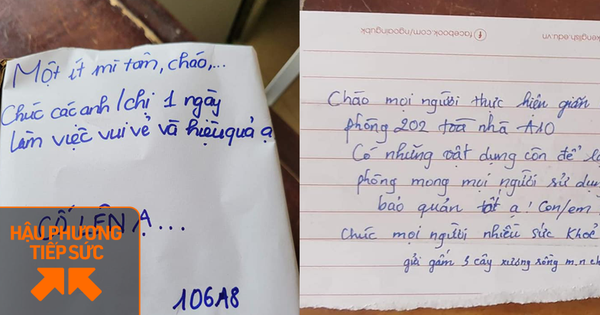 Một ít mì tôm, cháo,...
Chúc các anh/chị 1 ngày
làm việc vui vẻ và hiệu quả ạ
CỐ LÊN Ạ...
106A8
HẬU PHƯƠNG
TIẾP SỨC
facebook.com/ngoaingubk
kenglish.edu.vn
Chào mọi người thực hiện giãn
phòng 202 toà nhà A10
Có những vật dụng còn để
phòng mong mọi người sử
bảo quản tốt ạ! Con/em
Chúc mọi người nhiều sức khoẻ
gửi gắm 3 cây xương rồng m.n